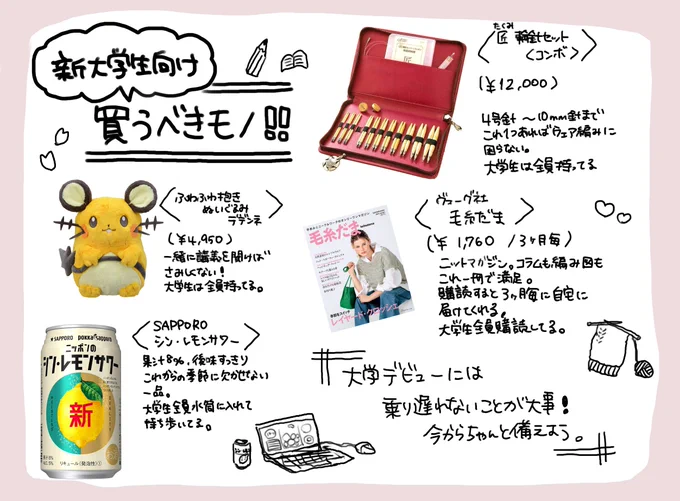 新大学生向け
買うべきモノ!!
たくみ
匠 輪針セット
<コンボ>
(¥12,000)
4号針 〜10mm針まで
これ1つあればウェア編みに
困らない。
大学生は全員持ってる
ふわふわ抱き
ぬいぐるみ
デデンネ
(¥4,950)
一緒に講義を聞けば
さみしくない!
大学生は全員持ってる。
ヴォーグ社
毛糸だま
(¥ 1,760 /3ヶ月毎)
ニットマガジン。コラムも編み図も
これ一冊で満足。
購読すると3ヶ月毎に自宅に
届けてくれる。
大学生全員購読してる。
毛糸だま
レイヤード・クロッシェ
SAPPORO
シン・レモンサワー
果汁8%、後味すっきり
これからの季節に欠かせない
一品。
大学生全員水筒に入れて
持ち歩いてる。
SAPPORO pokka sapporo
ニッポンの
シン・レモンサワー
新
リキュール(発泡性)①
大学デビューには
乗り遅れないことが大事!
今からちゃんと備えよう。